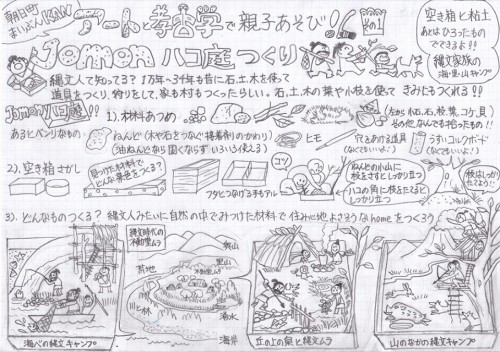 朝日町
まいぶんKAN
アートと考古学で親子あそび!!その1
Jomonハコ庭つくり
空き箱と粘土
あとはひろったもの
でできるよ!!
縄文家族の
海・里・山キャンプ
縄文人て知ってる?1万年~3千年も昔に石、土、木を使って
道具をつくり、狩りをして、家も村もつくったらしい。石、土、木の葉や小枝を使って きみたちもつくれる!!
Jomonハコ庭!!
1). 材料あつめ
(だから小石、石、枝、葉、コケ、貝)
その他、なんでも拾ったもの!!
あるとベンリなもの
ねんど(木や石をつなぐ接着剤のかわり)
(油ねんどなら固くならずいろいろ使える)
ヒモ
穴をあける道具
(なくてもいいよ!)
うすいコルクボード
(なくてもいいよ!)
2). 空き箱さがし
見つけた材料で
どんな景色をつくる?
フタとつなげる手もアル
コツ
ねんどの小山に
枝をさすとしっかり立つ
ハコの角に枝を立てると
しっかり立つ
枝はしっかり
立てたいよう!
3). どんなものつくる? 縄文人みたいに自然の中でみつけた材料で 住み心地よさそうなhomeをつくろう
縄文時代の
不動堂ムラ
奥山
里山
不動堂ムラ
草地
川と林
湧水
海岸
海べの縄文キャンプ
丘の上の家と縄文ムラ
山のなかの縄文キャンプ